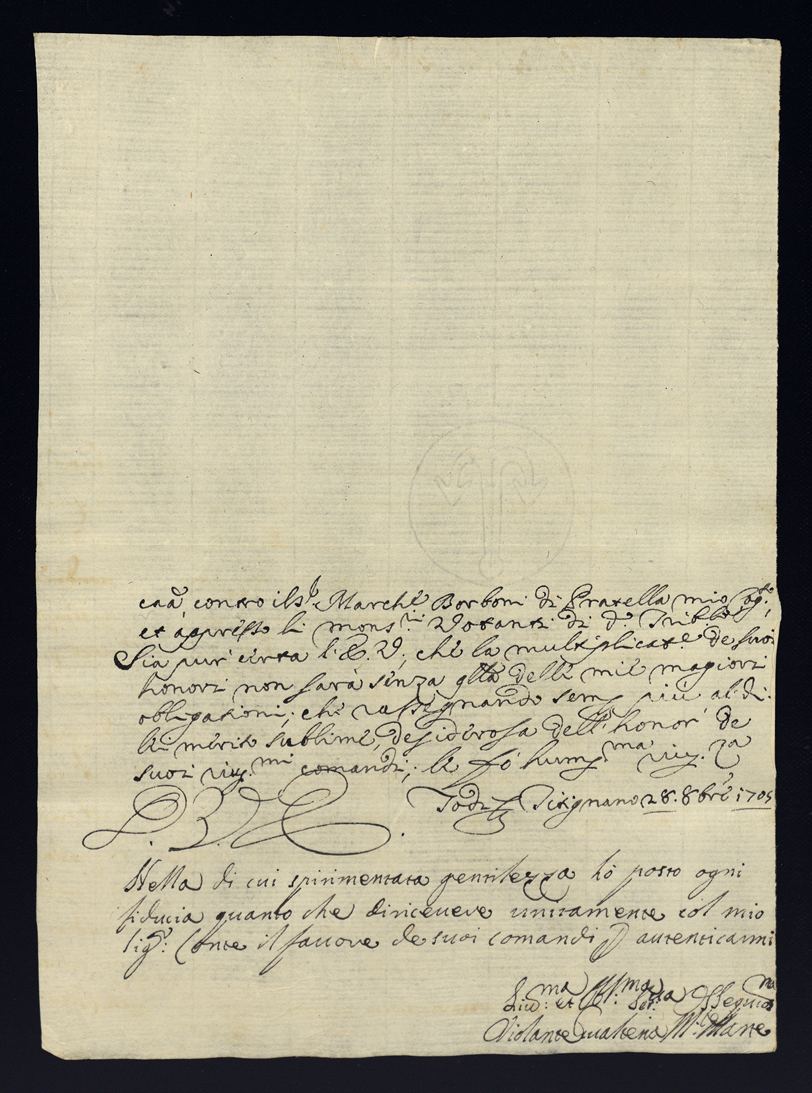 caã, contro il Sr. Marche Borboni di Pratella mio
et appresso li Monsri Votanti di do Trible
Sia pur certa l'E.V., che la multiplicatne de suoi
honori non sarà senza qtta delle mie magiori
obligationi; che rassignando semp più al di
lei merito sublime, desiderosa dell'honor de
suoi rivmi comandi, le fò humma riv.za
Todi p Titignano 28. 8bre 1705
D. V. E.
Nella di cui sperimentata gentilezza hò posto ogni
fiducia quanto che di ricevere unitamente col mio
Sigr. Conte il favore de suoi comandi p autenticarmi
Divma et Obma Serva Ossequiosma
Violante